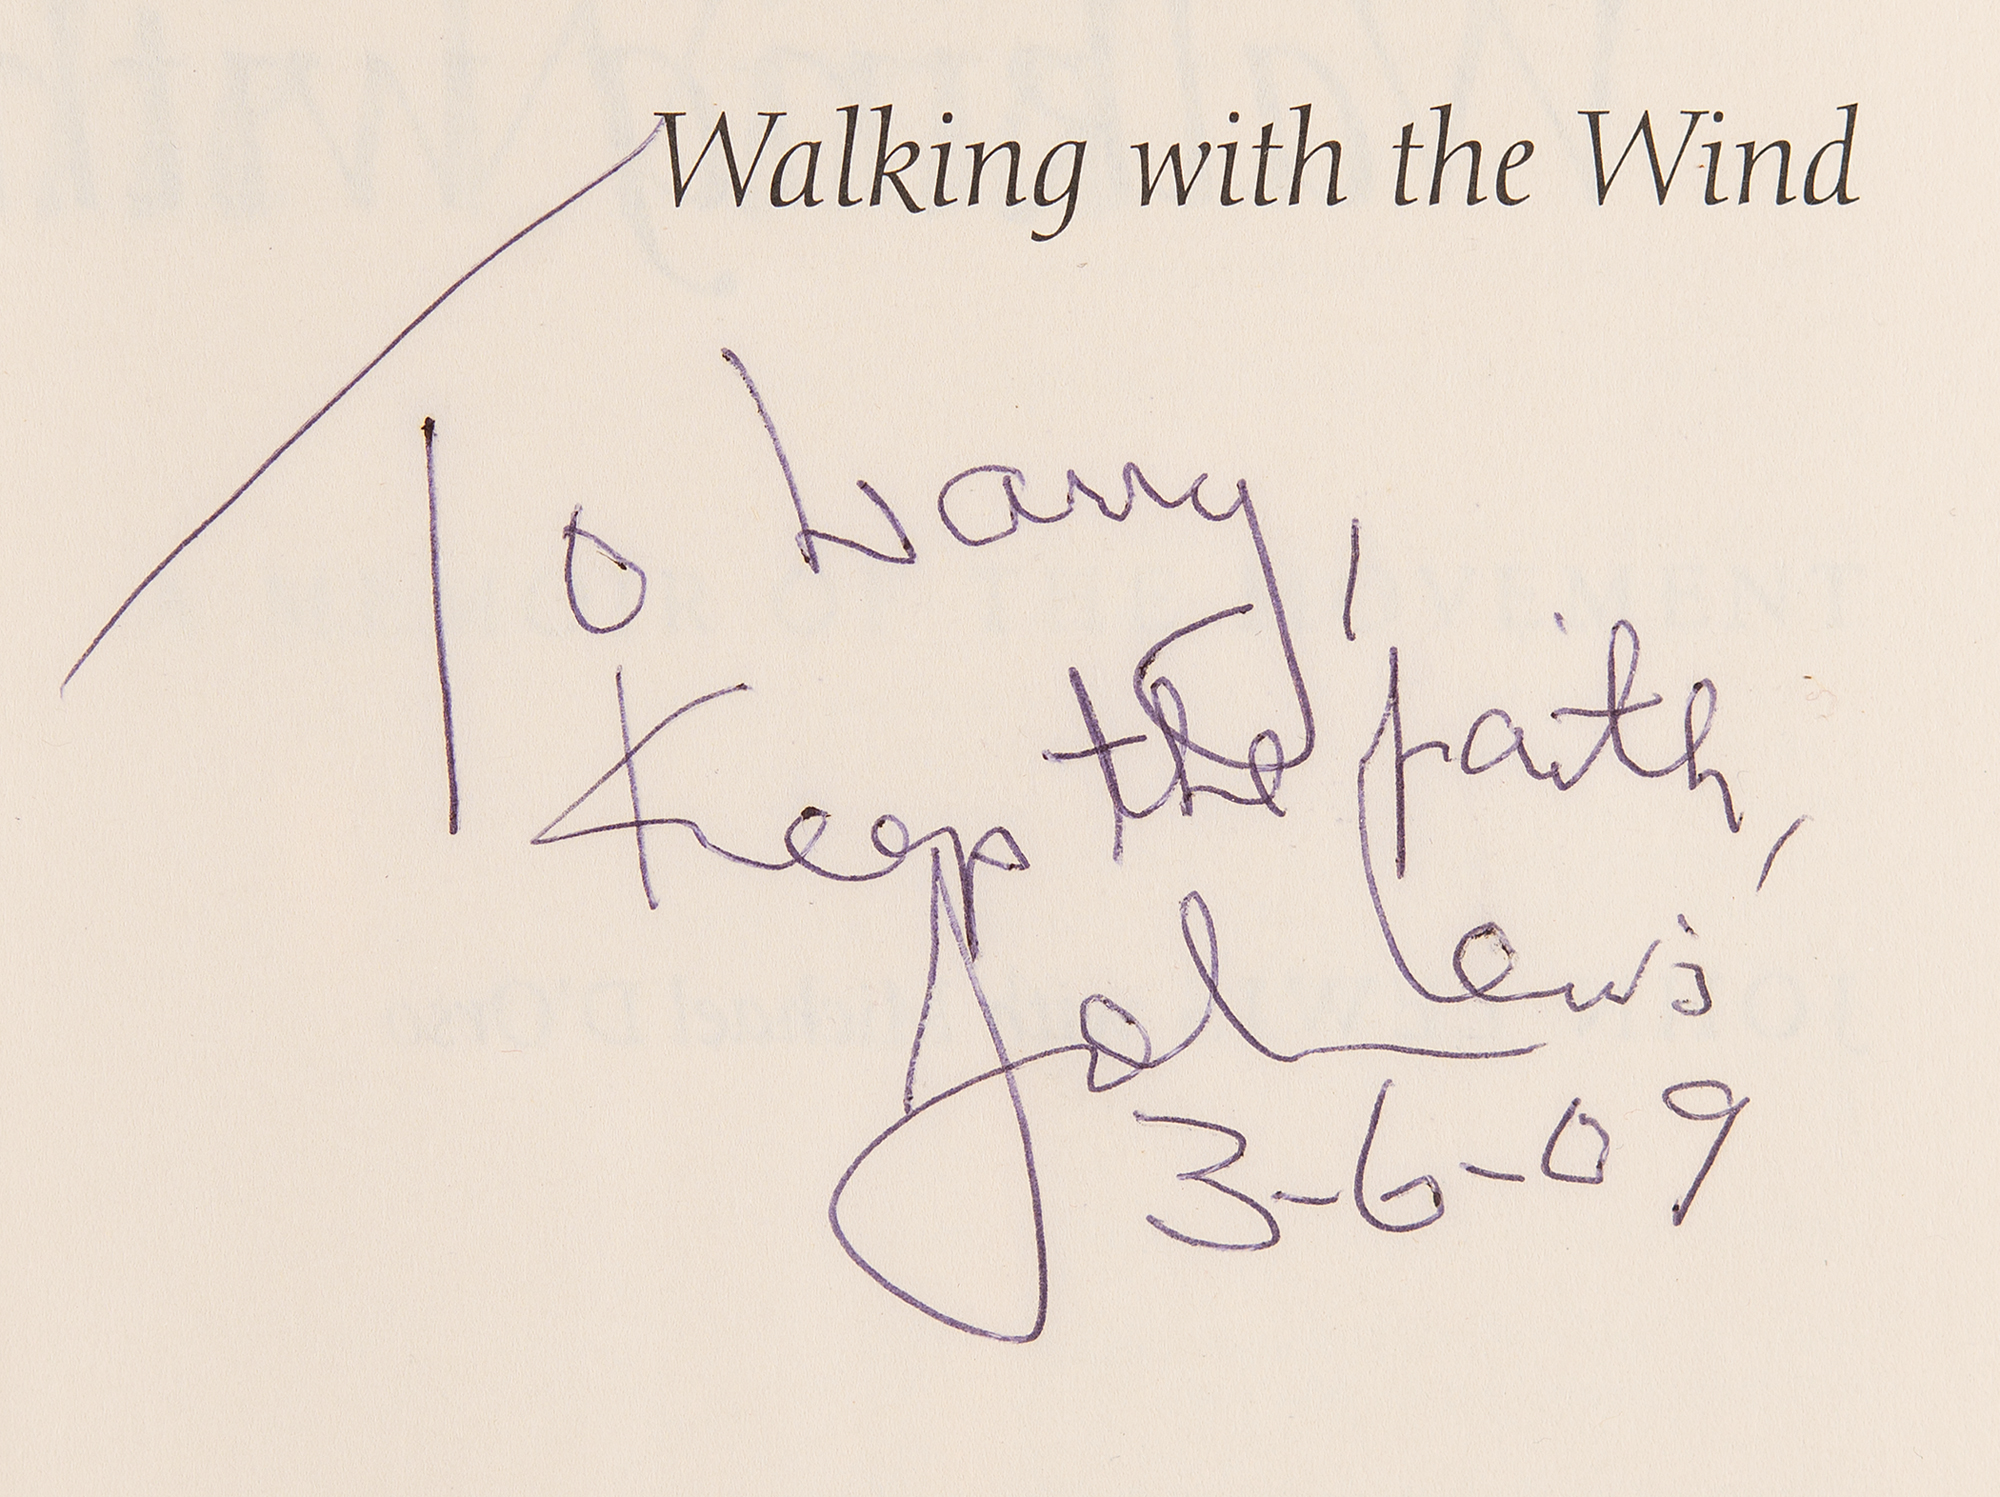 Walking with the Wind
To Larry,
Keep the faith,
John Lewis
3-6-09